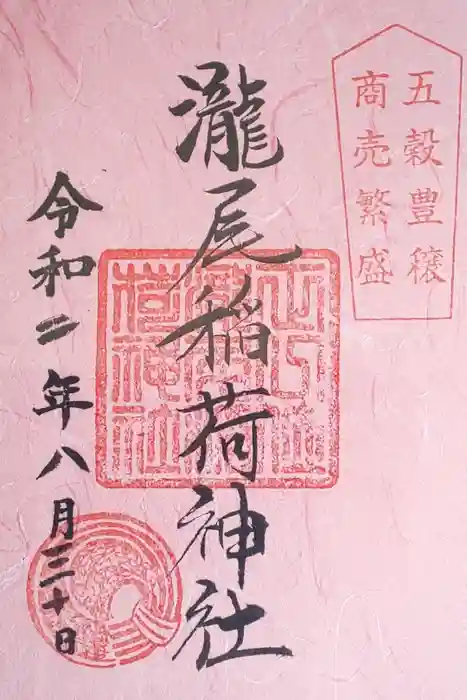 五穀豊穣
商売繁盛
瀧尾稲荷神社
令和二年八月三十日